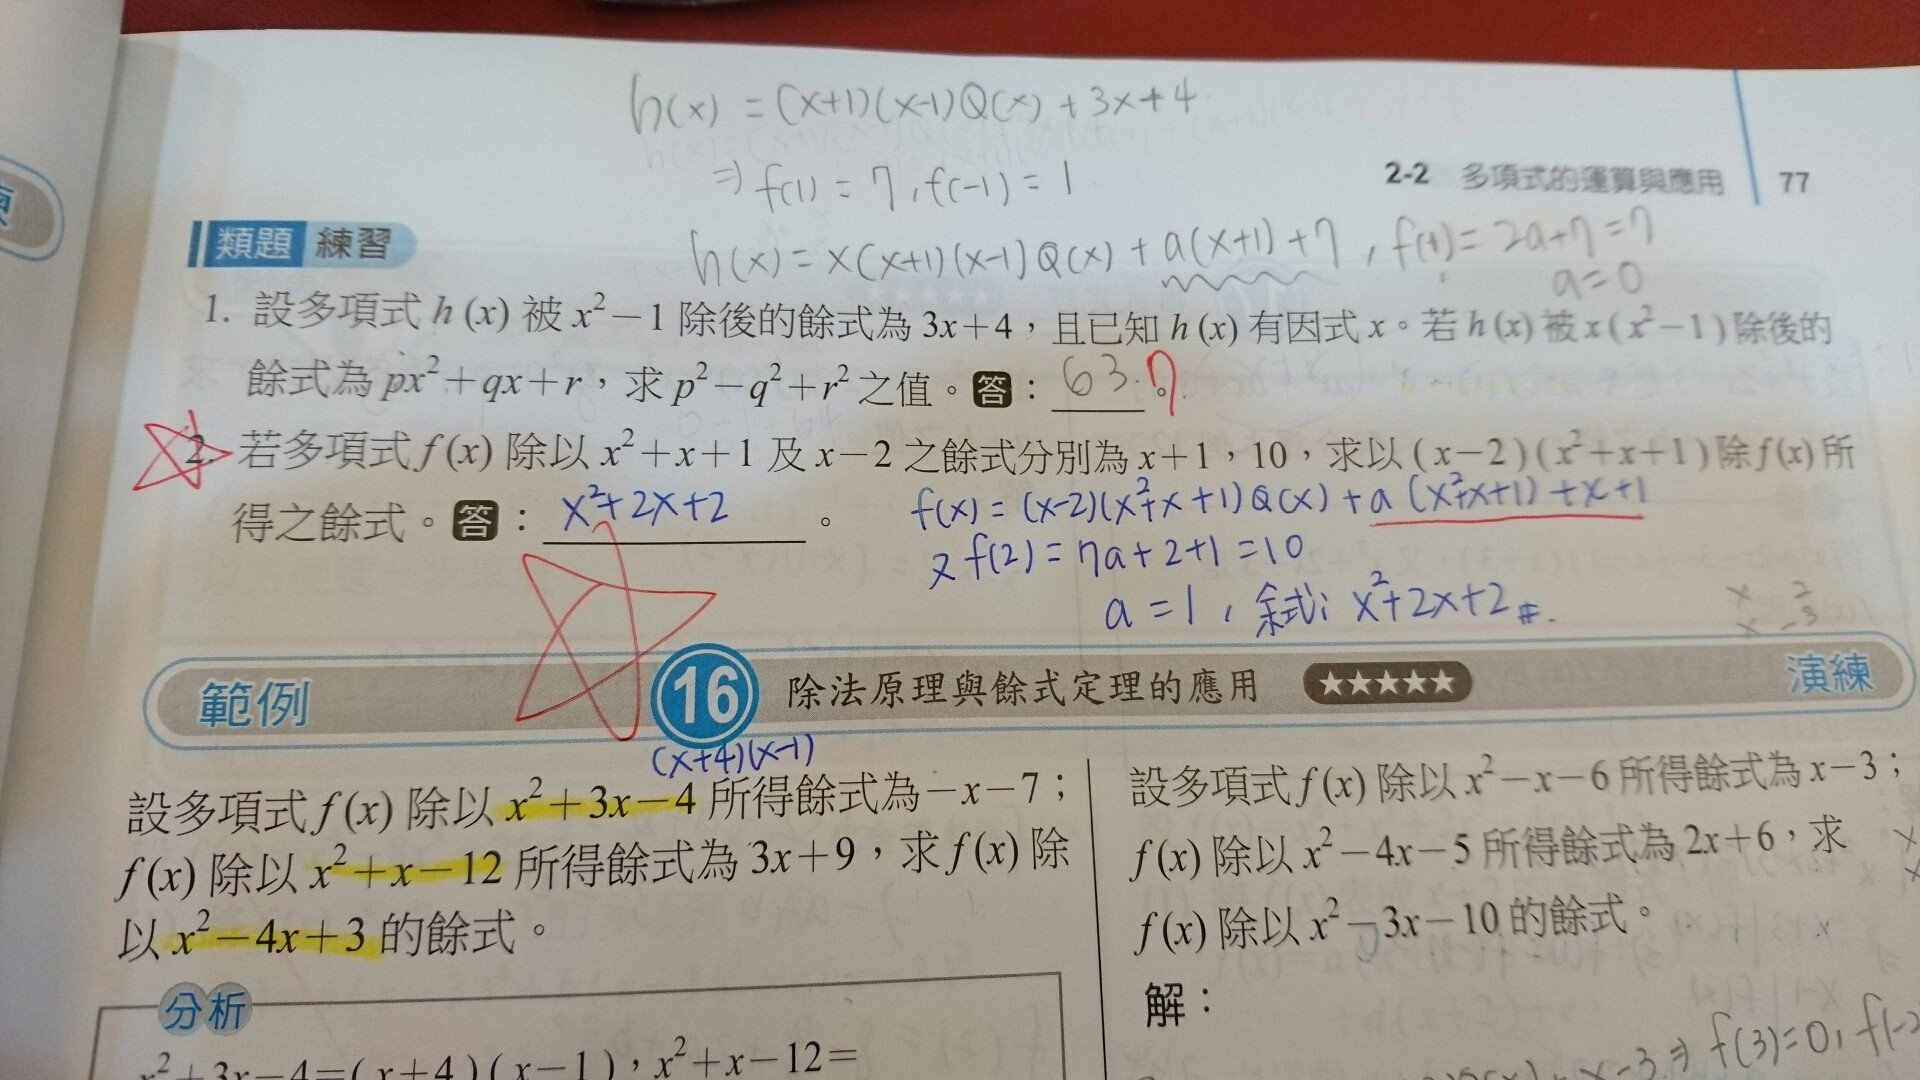 h(x) = (x+1)(x-1)Q(x) + 3x+4
⇒ f(1) = 7, f(-1) = 1
2-2 多項式的運算與應用 77
類題 練習
h(x) = x(x+1)(x-1)Q(x) + a(x+1)+7, f(1)= 2a+7=7
a=0
1. 設多項式 h (x) 被 x²－1 除後的餘式為 3x＋4，且已知 h (x) 有因式 x。若 h (x) 被 x ( x²－1 ) 除後的
餘式為 px²＋qx＋r，求 p²－q²＋r² 之值。答：63. 7。
2. 若多項式 f (x) 除以 x²＋x＋1 及 x－2 之餘式分別為 x＋1，10，求以 ( x－2 ) ( x²＋x＋1 ) 除 f (x) 所
得之餘式。答：x²+2x+2。
f(x) = (x-2)(x²+x+1)Q(x) + a(x²+x+1)+x+1
又 f(2) = 7a+2+1=10
a = 1, 余式: x²+2x+2 #.
x 2
x -3
範例 16 除法原理與餘式定理的應用 ★★★★★ 演練
(x+4)(x-1)
設多項式 f (x) 除以 x²＋3x－4 所得餘式為－x－7；
f (x) 除以 x²＋x－12 所得餘式為 3x＋9，求 f (x) 除
以 x²－4x＋3 的餘式。
分析
x²＋3x－4＝( x＋4 ) ( x－1 )，x²＋x－12＝
設多項式 f (x) 除以 x²－x－6 所得餘式為 x－3；
f (x) 除以 x²－4x－5 所得餘式為 2x＋6，求
f (x) 除以 x²－3x－10 的餘式。
解：
x-3 ⇒ f(3)=0, f(-2